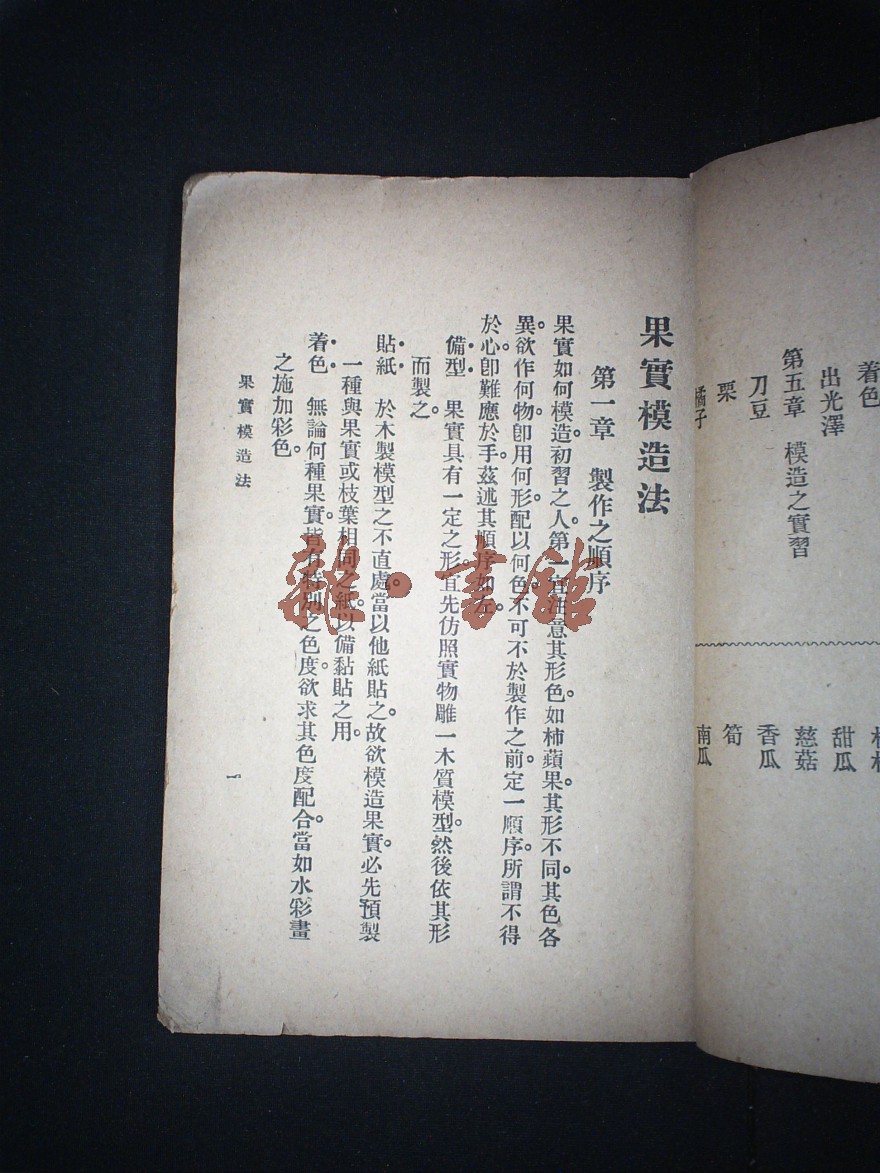 着色
出光澤
第五章　模造之實習
刀豆
栗
橘子
甜瓜
慈菇
香瓜
筍
南瓜
果實模造法
第一章　製作之順序
果實如何模造。初習之人。第一宜注意其形色。如柿蘋果。其形不同。其色各
異。欲作何物。卽用何形。配以何色。不可不於製作之前。定一順序。所謂不得
於心。卽難應於手。茲述其順序如左。
備型　果實具有一定之形。宜先仿照實物。雕一木質模型。然後依其形
而製之。
貼紙　於木製模型之不直處。當以他紙貼之。故欲模造果實。必先預製
一種與果實或枝葉相同之紙。以備黏貼之用。
着色　無論何種果實。皆有特別之色度。欲求其色度配合。當如水彩畫
之施加彩色。
果實模造法
一
雜·書館